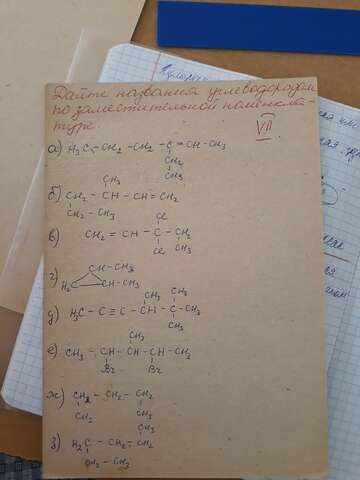 Дайте названия углеводородам
по заместительной номенкла-
туре.
VII
а) H₃C-CH₂-CH₂-C=CH-CH₃
CH₂
CH₃
CH₃
б) CH₂-CH-CH=CH₂
CH₂-CH₃
Cl
в) CH₂=CH-C-CH₂
Cl CH₃
г) CH-CH₃
H₂C CH-CH₃
CH₃ CH₃
д) H₃C-C≡C-CH-C-CH₃
CH₃
CH₃
е) CH₃-CH-CH-CH-CH₃
Br Br
ж) CH₂-CH₂-CH₂
CH₃ CH₃
з) H₂C-CH₂-CH₂
CH₂-CH₃ CH₃